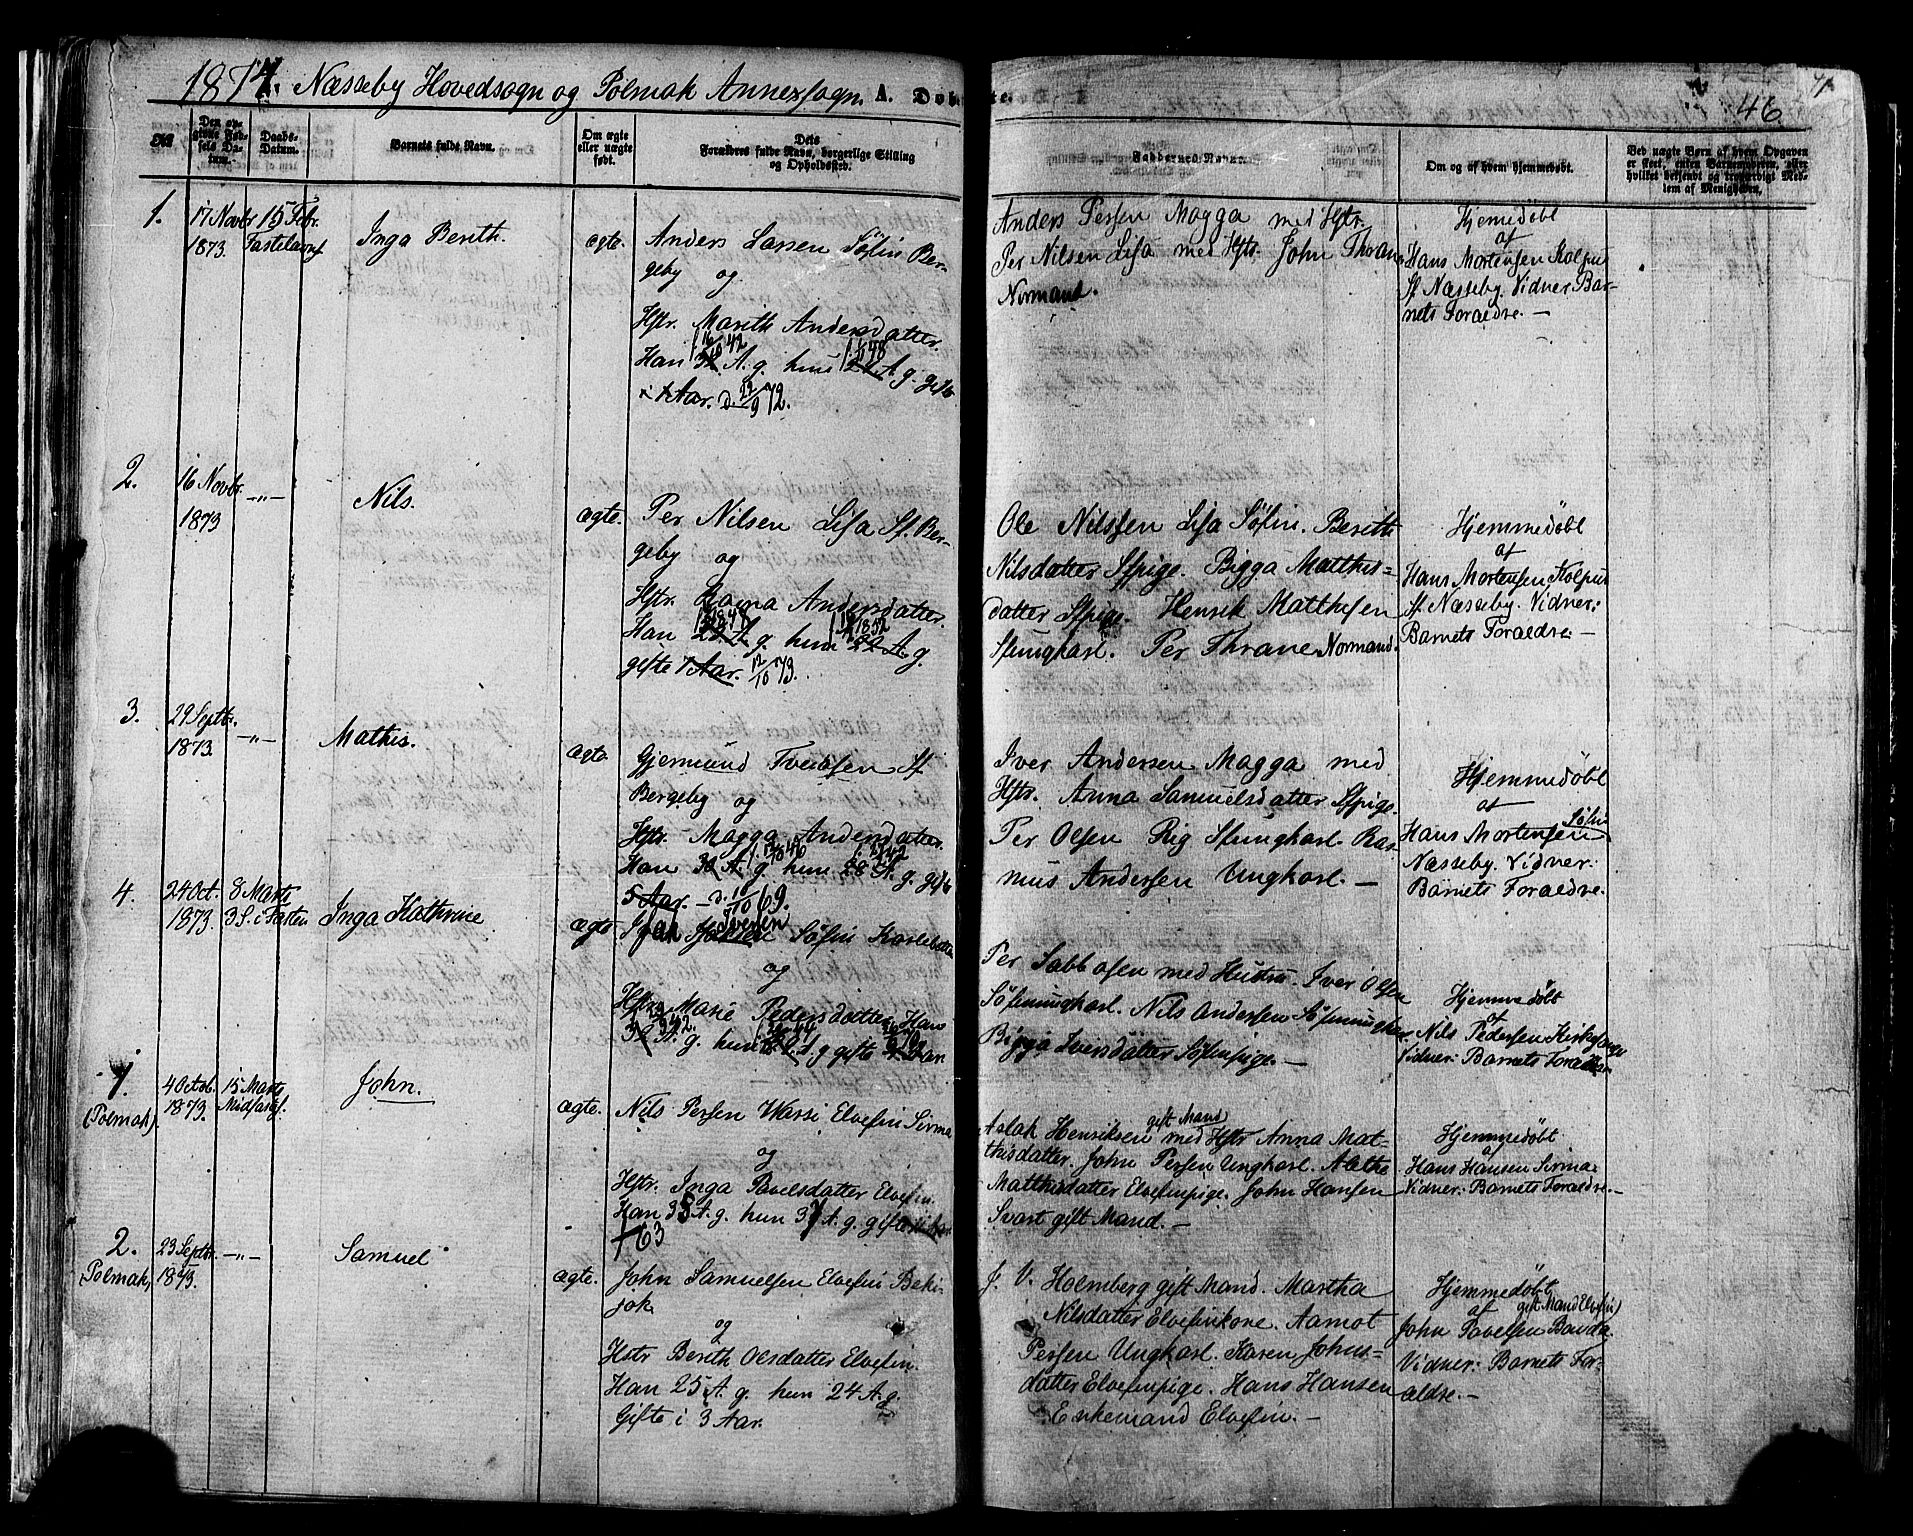 1874. Næsseby Hovedsogn og Polmak Annexsogn. A. Døb
46
No.
Den opgivne Fødsels Datum.
Daabs-Datum.
Barnets fulde Navn.
Om ægte eller uægte født.
Dets Forældres fulde Navn, borgerlige Stilling og Opholdssted.
Faddernes Navne.
Om og af hvem hjemmedøbt.
Ved uægte Børn af hvem Opgaven er skeet, enten Barnemoderen, eller hvilket bekjendt og troværdigt Medlem af Menigheden.
1.
17 Novbr
1873.
15 Febr.
Fastelavns
Inga Berith.
ægte.
Anders Larsen Søfin Ber-
geby og
Hstr. Marith Andersdatter.
Han A. g. hun A g. gifte
i 1 Aar. d. 29/9 72.
Anders Persen Magga med Hstr.
Per Nilsen Lisa med Hstr. John Thrane
Normand.
Hjemedøbt
af
Hans Mortensen Kolpus
Sf Næsseby. Vidner Bar-
nets Foræeldre. —
2.
16 Novbr.
1873
—„—
Nils.
ægte.
Per Nilsen Lisa Sf. Ber-
geby og
Hstr. Ragna Andersdatter.
Han A. g. hun 22 A. g
gifte 1 Aar. 12/10 73.
Ole Nilssen Lisa Søfin. Berith
Nilsdatter Sfpige. Bigga Matthis-
datter Sfpige. Henrik Mathesen
Sfungkarl. Per Thrane Normand.
Hjemmedøbt
af
Hans Mortensen Kolpus
Sf Næsseby. Vidner:
Barnets Foræeldre. —
3.
29 Septbr.
1873.
—„—
Mathis.
ægte
Gjermund Tveitsen Sf
Bergeby og
Hstr. Magga Andersdatter.
Han A. g. hun A. g. gifte
5 Aar. — d. 1/10 69.
Iver Andersen Magga med
Hstr. Anna Samuelsdatter Sfpige.
Per Olsen Rig Sfungkarl. Ras-
mus Andersen Ungkarl. —
Hjemmedøbt
af
Søfin
Hans Mortensen
Næsseby. Vidner:
Barnets Foræeldre.
4.
24 Oct.
1873.
8 Marts
3 S. i Fasten
Inga Kathrine
ægte
Iversen
Søfin Karlebotn
og
Hstr. Marie Pedersdatter. Han
A. g. hun A. g gifte Aar.
Per Sabbasen med Hustru. Iver Olsen
Søfinungkarl. Nils Andersen Søfinungkar.
Bigga Iversdatter Søfinpige. —
Hjemmedøbt
af
Nils Pedersen Kirkesanger
Vidner: Barnets Foræeldre.
1.
(Polmak)
4 Octob.
1873.
15 Marts
Midfastes.
John.
ægte.
Nils Persen Wassi Elvefin Sirma
og
Hstr. Inga Povelsdatter Elvefin.
Han 38 A. g. hun 37 A. g. gifte
63
gift Mand
Aslak Henriksen med Hstr Anna Mat-
thisdatter. John Persen Ungkarl. Alethe
Matthisdatter Elvefinpige. John Hansen
Svart gift Mand. —
Hjemmedøbt
af
Hans Hansen Sirma.
Vidner: Barnets Foræeldre. —
2.
(Polmak)
23 Septbr.
1873.
—„—
Samuel
ægte.
John Samuelsen Elvefin Beki-
jok.
og
Hstr Berith Olsdatter Elvefin.
Han 25 A. g. hun 24 A. g.
Gifte i 3 Aar.
J. V. Holmberg gift Mand. Martha
Nilsdatter Elvefinkone. Aamot
Persen Ungkarl. Karen Johns-
datter Elvefinpige. Hans Hansen
Enkemand Elvefin. —
Hjemmedøbt
af
gift Mand Elvefin
John Povelsen Bauda.
Vidner: Barnets For-
ældre. —